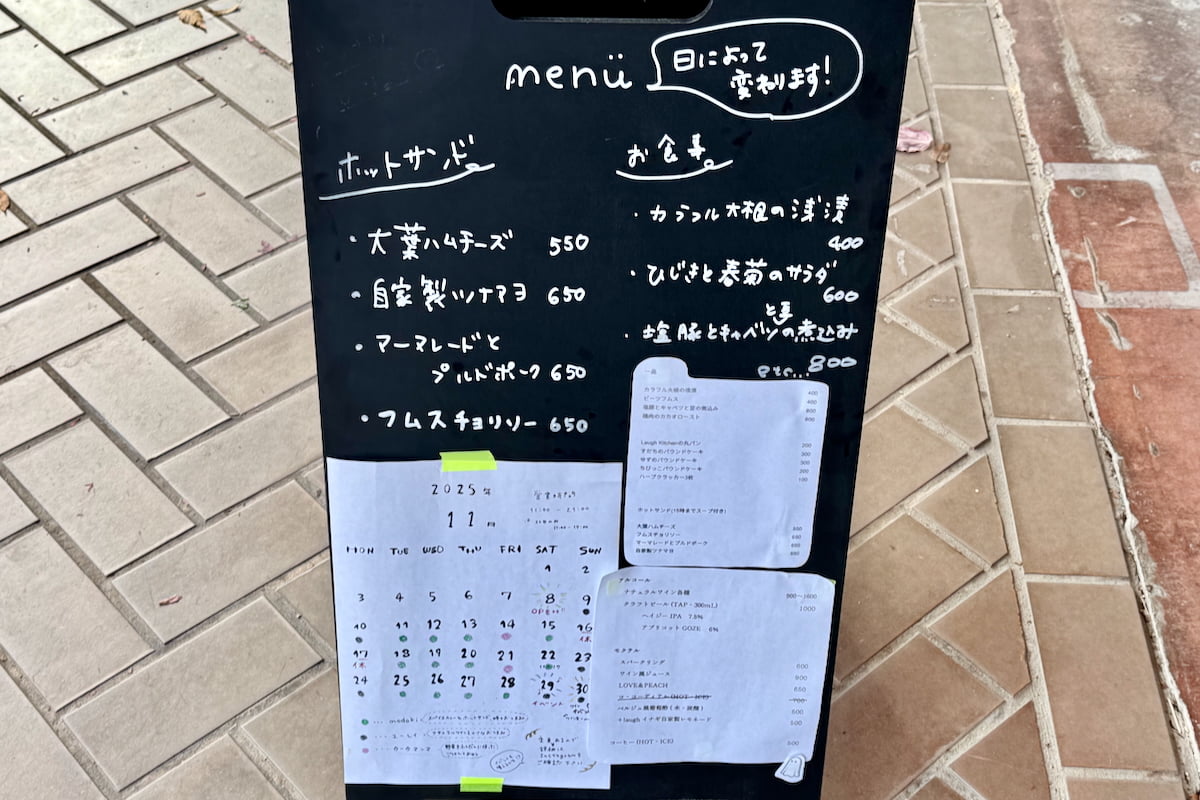 menü
日によって
変わります!
ホットサンド
・大葉ハムチーズ 550
・自家製ツナマヨ 650
・マーマレードと
プルドポーク 650
・フムスチョリソー 650
お食事
・カラフル大根の浅漬
400
・ひじきと春菊のサラダ
600
・塩豚とキャベツと豆の煮込み
800
etc...
一品
カラフル大根の浅漬 400
ビーツフムス 400
塩豚とキャベツと豆の煮込み 800
鶏肉のカカオロースト 800
Laugh Kitchenの丸パン 200
すだちのパウンドケーキ 300
ゆずのパウンドケーキ 300
ちびっこパウンドケーキ 300
ハーブクラッカー3枚 100
ホットサンド(15時までスープ付き)
大葉ハムチーズ
フムスチョリソー
マーマレードとプルドポーク
自家製ツナマヨ
アルコール
ナチュラルワイン各種 900〜1600
クラフトビール(TAP・300mL) 1000
ヘイジーIPA 7.5%
アプリコットGOZE 6%
モクテル
スパークリング 600
ワイン風ジュース 900
LOVE&PEACH 650
コ・コーディアル(HOT・ICE) 700
ベルジュ風葡萄酢(水・炭酸) 500
+laughイナギ自家製レモネード 500
コーヒー(HOT・ICE) 500
2025年
11月
11:00 - 21:00
MON TUE WED THU FRI SAT SUN
1 2
3 4 5 6 7 8 9
OPEN!!
10 11 12 13 14 15 16
休
17 18 19 20 21 22 23
休
24 25 26 27 28 29 30
イベント
madoki